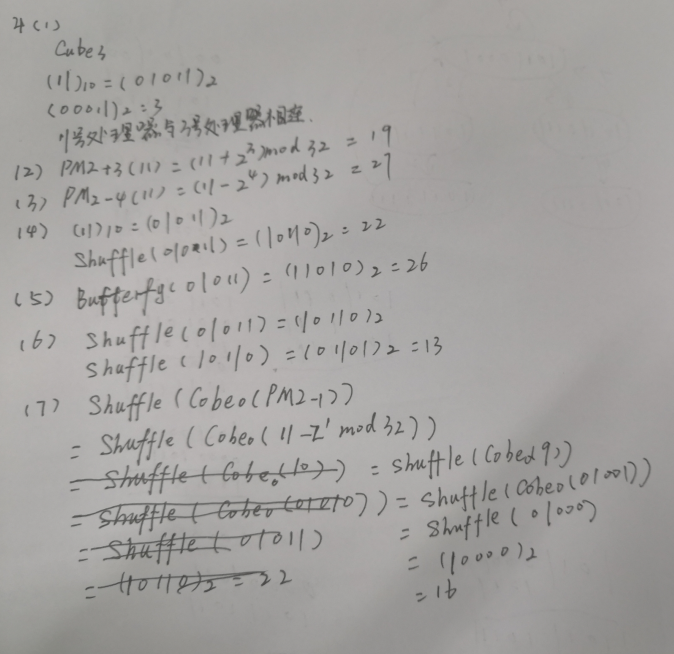 4(1)
Cube3
(11)10=(01011)2
(00011)2=3
11号处理器与3号处理器相连.
(2) PM2+3(11)=(11+2³)mod 32 = 19
(3) PM2-4(11)=(11-2⁴)mod32 = 27
(4) (11)10=(01011)2
Shuffle(01011)=(10110)2=22
(5) Butterfly(01011)=(11010)2=26
(6) Shuffle(01011)=(10110)2
Shuffle(10110)=(01101)2=13
(7) Shuffle(Cobe0(PM2-1))
= Shuffle(Cobe0(11-2' mod32))
= Shuffle(Cobe0(10)) = shuffle(Cobe0(9))
= Shuffle(Cobe0(01010)) = shuffle(Cobe0(01001))
= Shuffle(01011) = Shuffle(01000)
= (10110)2 = 22 = (10000)2
=16